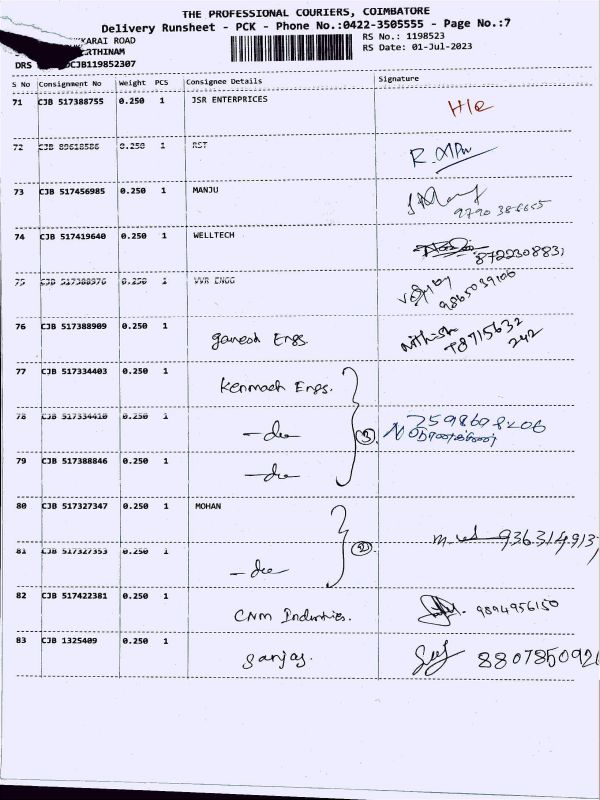 THE PROFESSIONAL COURIERS, COIMBATORE
Delivery Runsheet - PCK - Phone No.:0422-3505555 - Page No.:7
KARAI ROAD RS No.: 1198523
RTHINAM RS Date: 01-Jul-2023
DRS CJB119852307
S No Consignment No Weight PCS Consignee Details Signature
71 CJB 517388755 0.250 1 JSR ENTERPRICES
72 CJB 89618586 0.250 1 RST
73 CJB 517456985 0.250 1 MANJU
74 CJB 517419640 0.250 1 WELLTECH
872230883
75 CJB 517388976 0.250 1 VVR ENGG
9865039106
76 CJB 517388909 0.250 1 Ganesh Engs. Nithish
78715632
242
77 CJB 517334403 0.250 1 Kenmach Engs.
78 CJB 517334410 0.250 1 -do (3)
79 CJB 517388846 0.250 1 -do
80 CJB 517327347 0.250 1 MOHAN
936314913
81 CJB 517327353 0.250 1 -do (2)
82 CJB 517422381 0.250 1 CNM Industries. 9894956150
83 CJB 1325409 0.250 1 Sanjay. 880785092